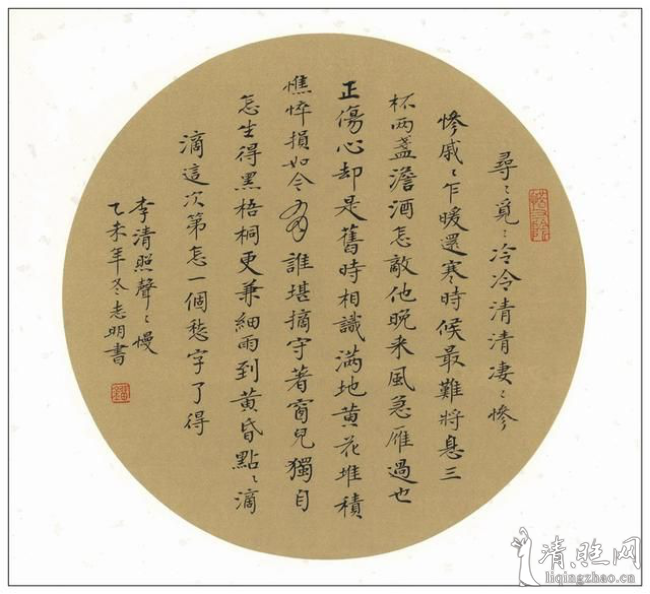 尋〻覓〻冷冷清清凄〻惨
惨戚〻乍暖還寒時候最難將息三
杯两盏澹酒怎敵他晚来風急雁過也
正傷心却是舊時相識满地黄花堆積
憔悴損如今有誰堪摘守著窗兒獨自
怎生得黑梧桐更兼細雨到黄昏點〻滴
滴這次第怎一個愁字了得
李清照聲〻慢
乙未年冬志明書
清照网
liqingzhao.cn